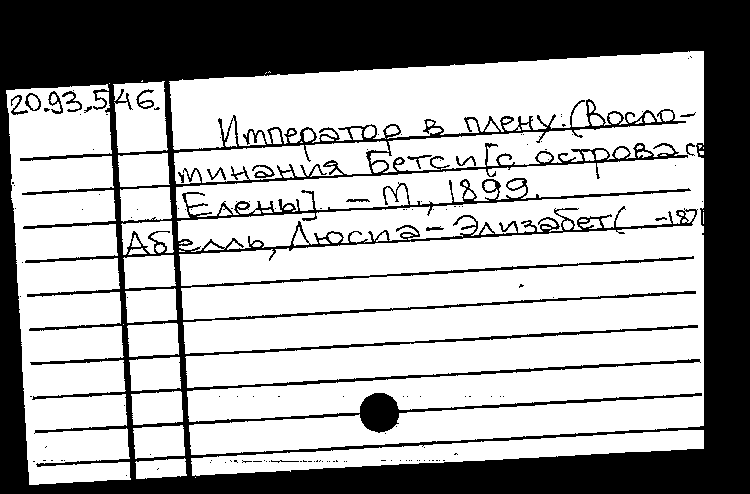 20.93.5.46.
Император в плену. (Воспо-
минания Бетси [с острова св
Елены]. – М., 1899.
Абелль, Люсиа-Элизабет ( -1871